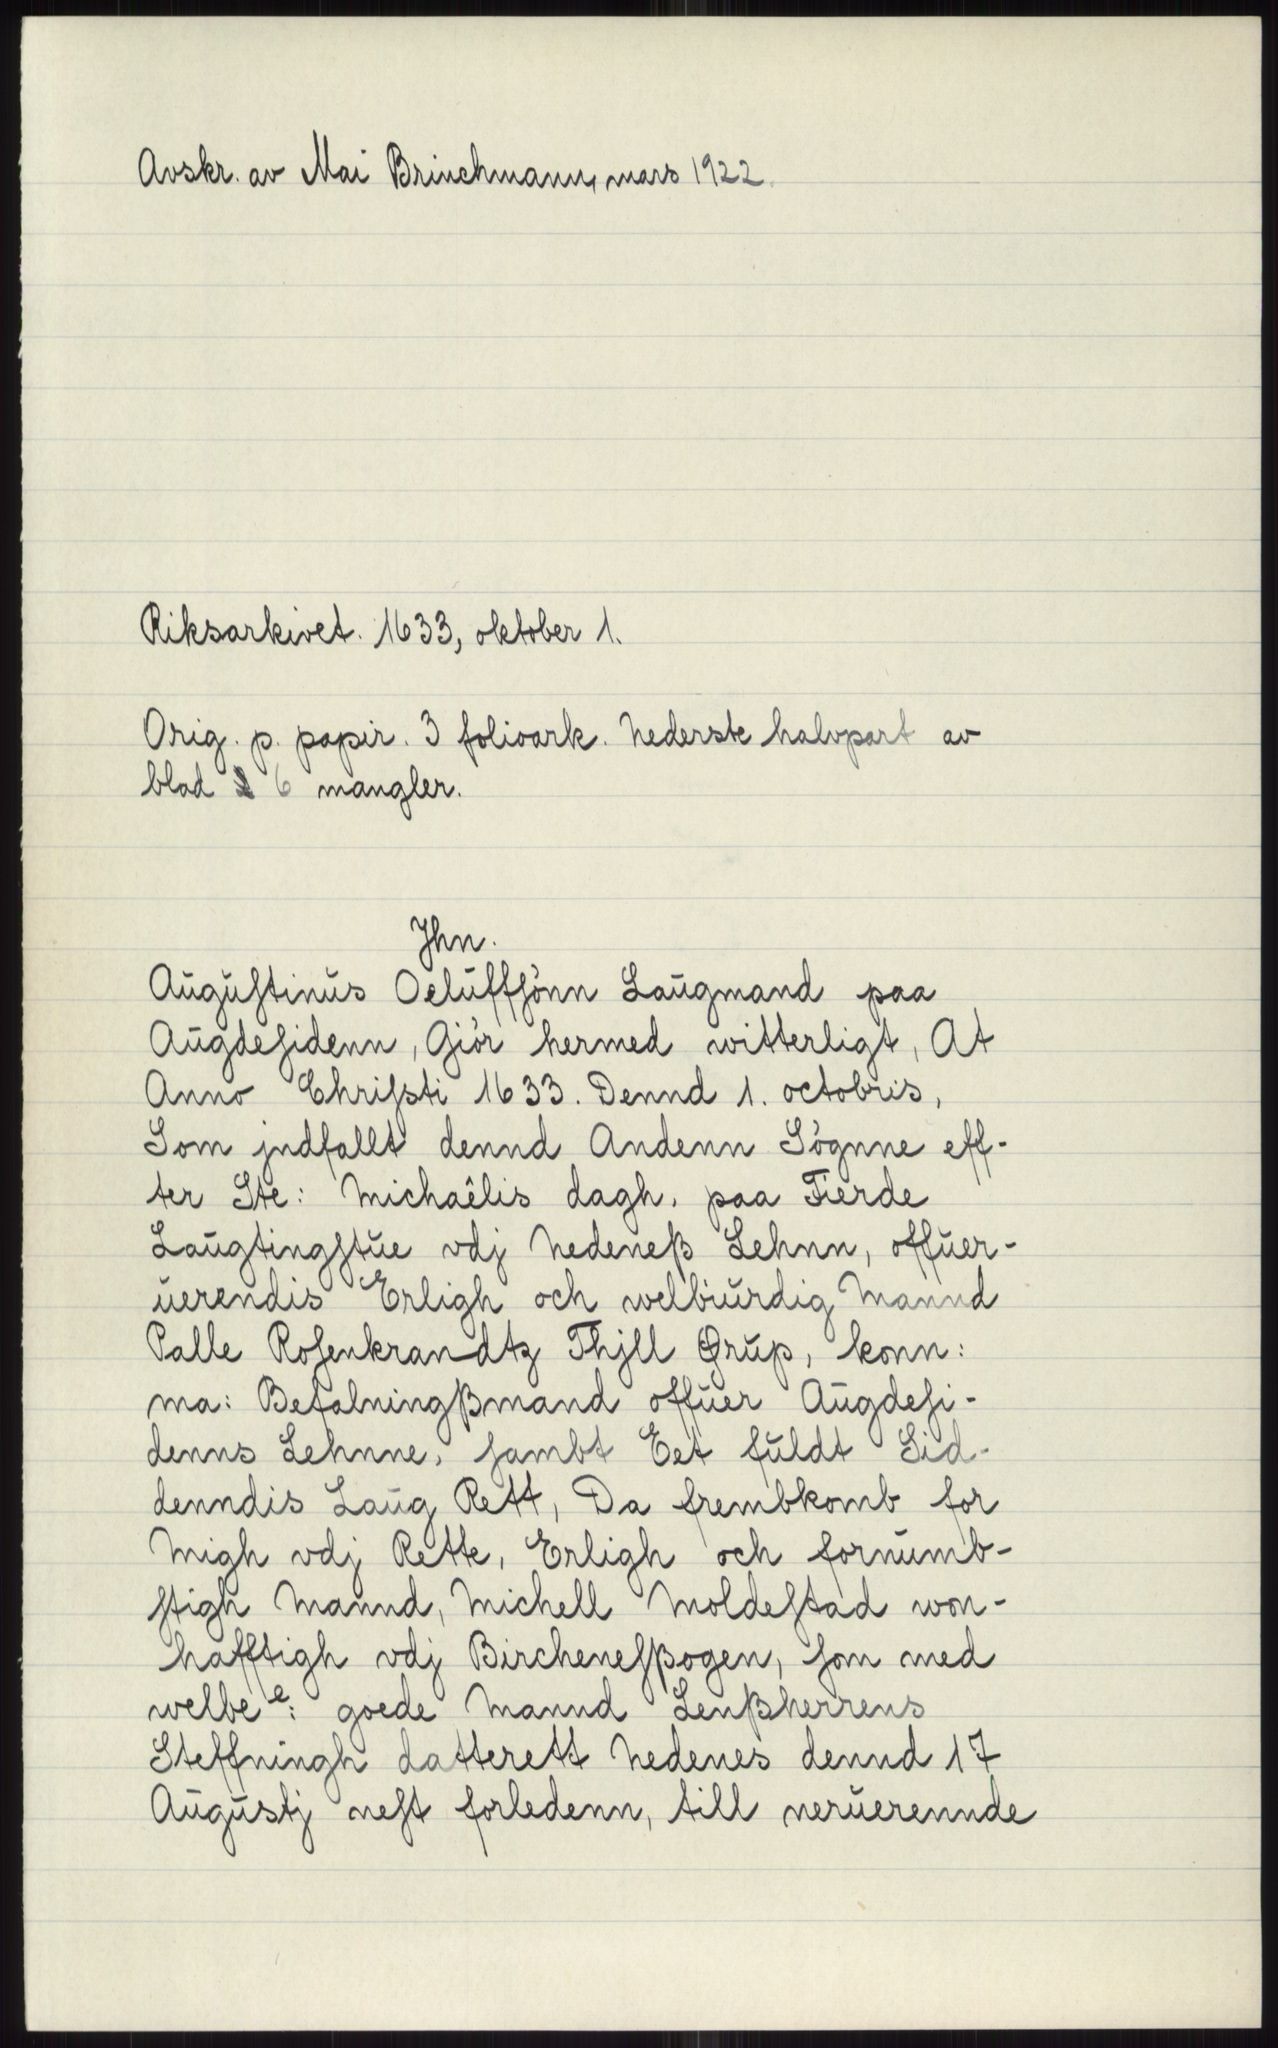 Avskr. av Mai Brinchmann, mars 1922.
Riksarkivet. 1633, oktober 1.
Orig. p. papir. 3 folioark. Nederste halvpart av
blad 6 mangler.
Jhn.
Augustinus Oeluffsönn Laugmand paa
Augdesidenn, Giör hermed witterligt, At
Anno Christi 1633. Dennd 1. octobris,
Som jndfallt dennd Andenn Sögnne eff-
ter Ste: Michaêlis dagh, paa Fierde
Laugtingstue vdj Nedeneß Lehnn, offuer-
uerendis Erligh och welbiurdig Mannd
Palle Rosenkrandtz Thjll Ørup, konn:
ma: Befalningßmand offuer Augdesi-
denns Lehnne, sambt Eet fuldt Sid-
denndis Laug Rett, Da frembkomb for
Migh vdj Rette, Erligh och fornumb-
stigh Mannd, Michell Moldestad won-
hafftigh vdj Birchenesßogen, som med
welbe e: goede Mannd Lenßherrens
Steffningh datterett Nedenes dennd 17
Augustj nest forledenn, till neruerennde